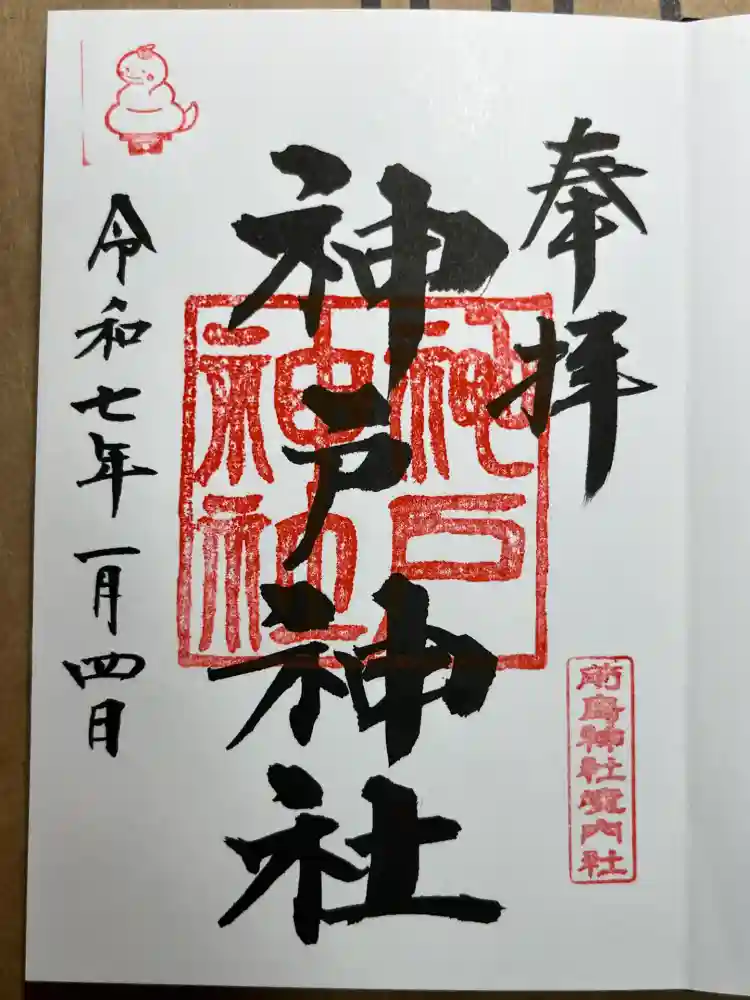 奉拝
前鳥神社境内社
神戸神社
神戸神社
令和七年一月四日